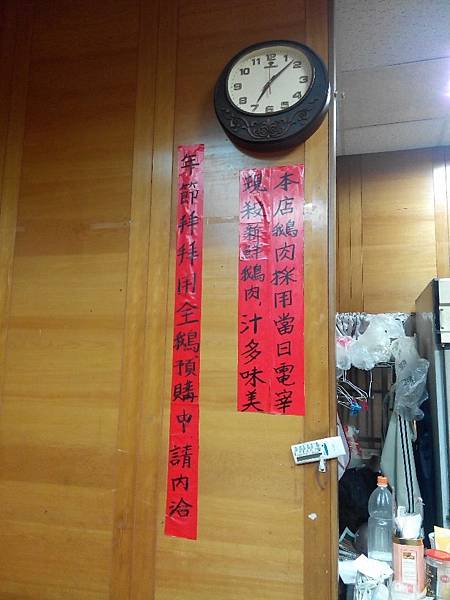 12
1
2
3
4
5
6
7
8
9
10
11
本店鵝肉採用當日電宰
現殺新鮮鵝肉，汁多味美
年節拜拜用全鵝預購中 請內洽